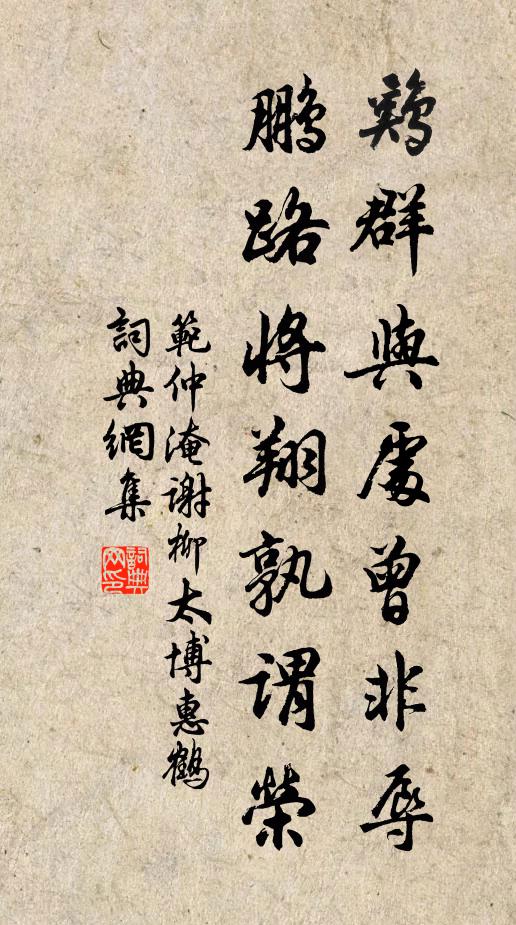 鷄群與處曾非辱
鵬路將翔孰謂榮
範仲淹謝柳太博惠鶴
詞典網集
詞典网印